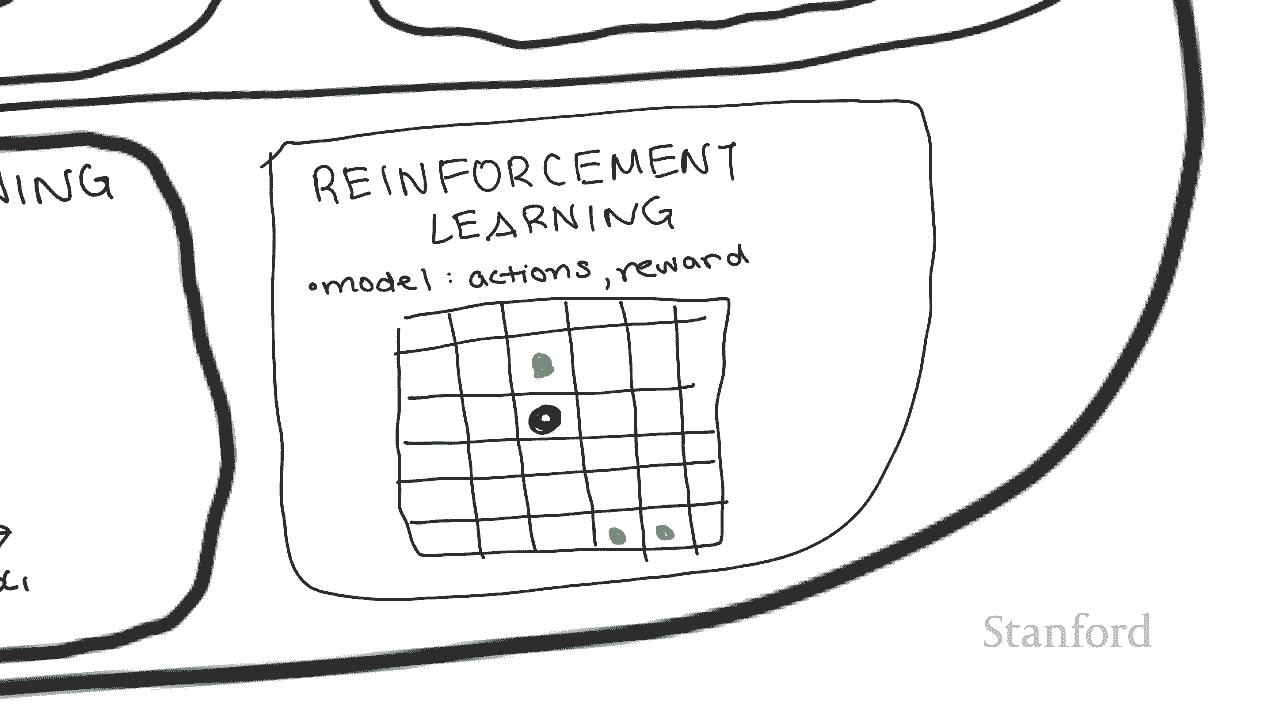 REINFORCEMENT
LEARNING
•model: actions, reward
Stanford